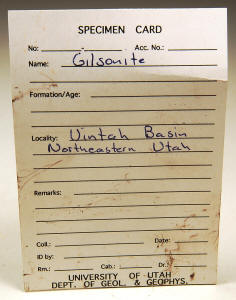 SPECIMEN CARD
No: Acc. No.:
Name: Gilsonite
Formation/Age:
Locality: Uintah Basin
Northeastern Utah
Remarks:
Coll.: Date:
ID by:
Rm.: Cab.: Dr.:
UNIVERSITY OF UTAH
DEPT. OF GEOL. & GEOPHYS.